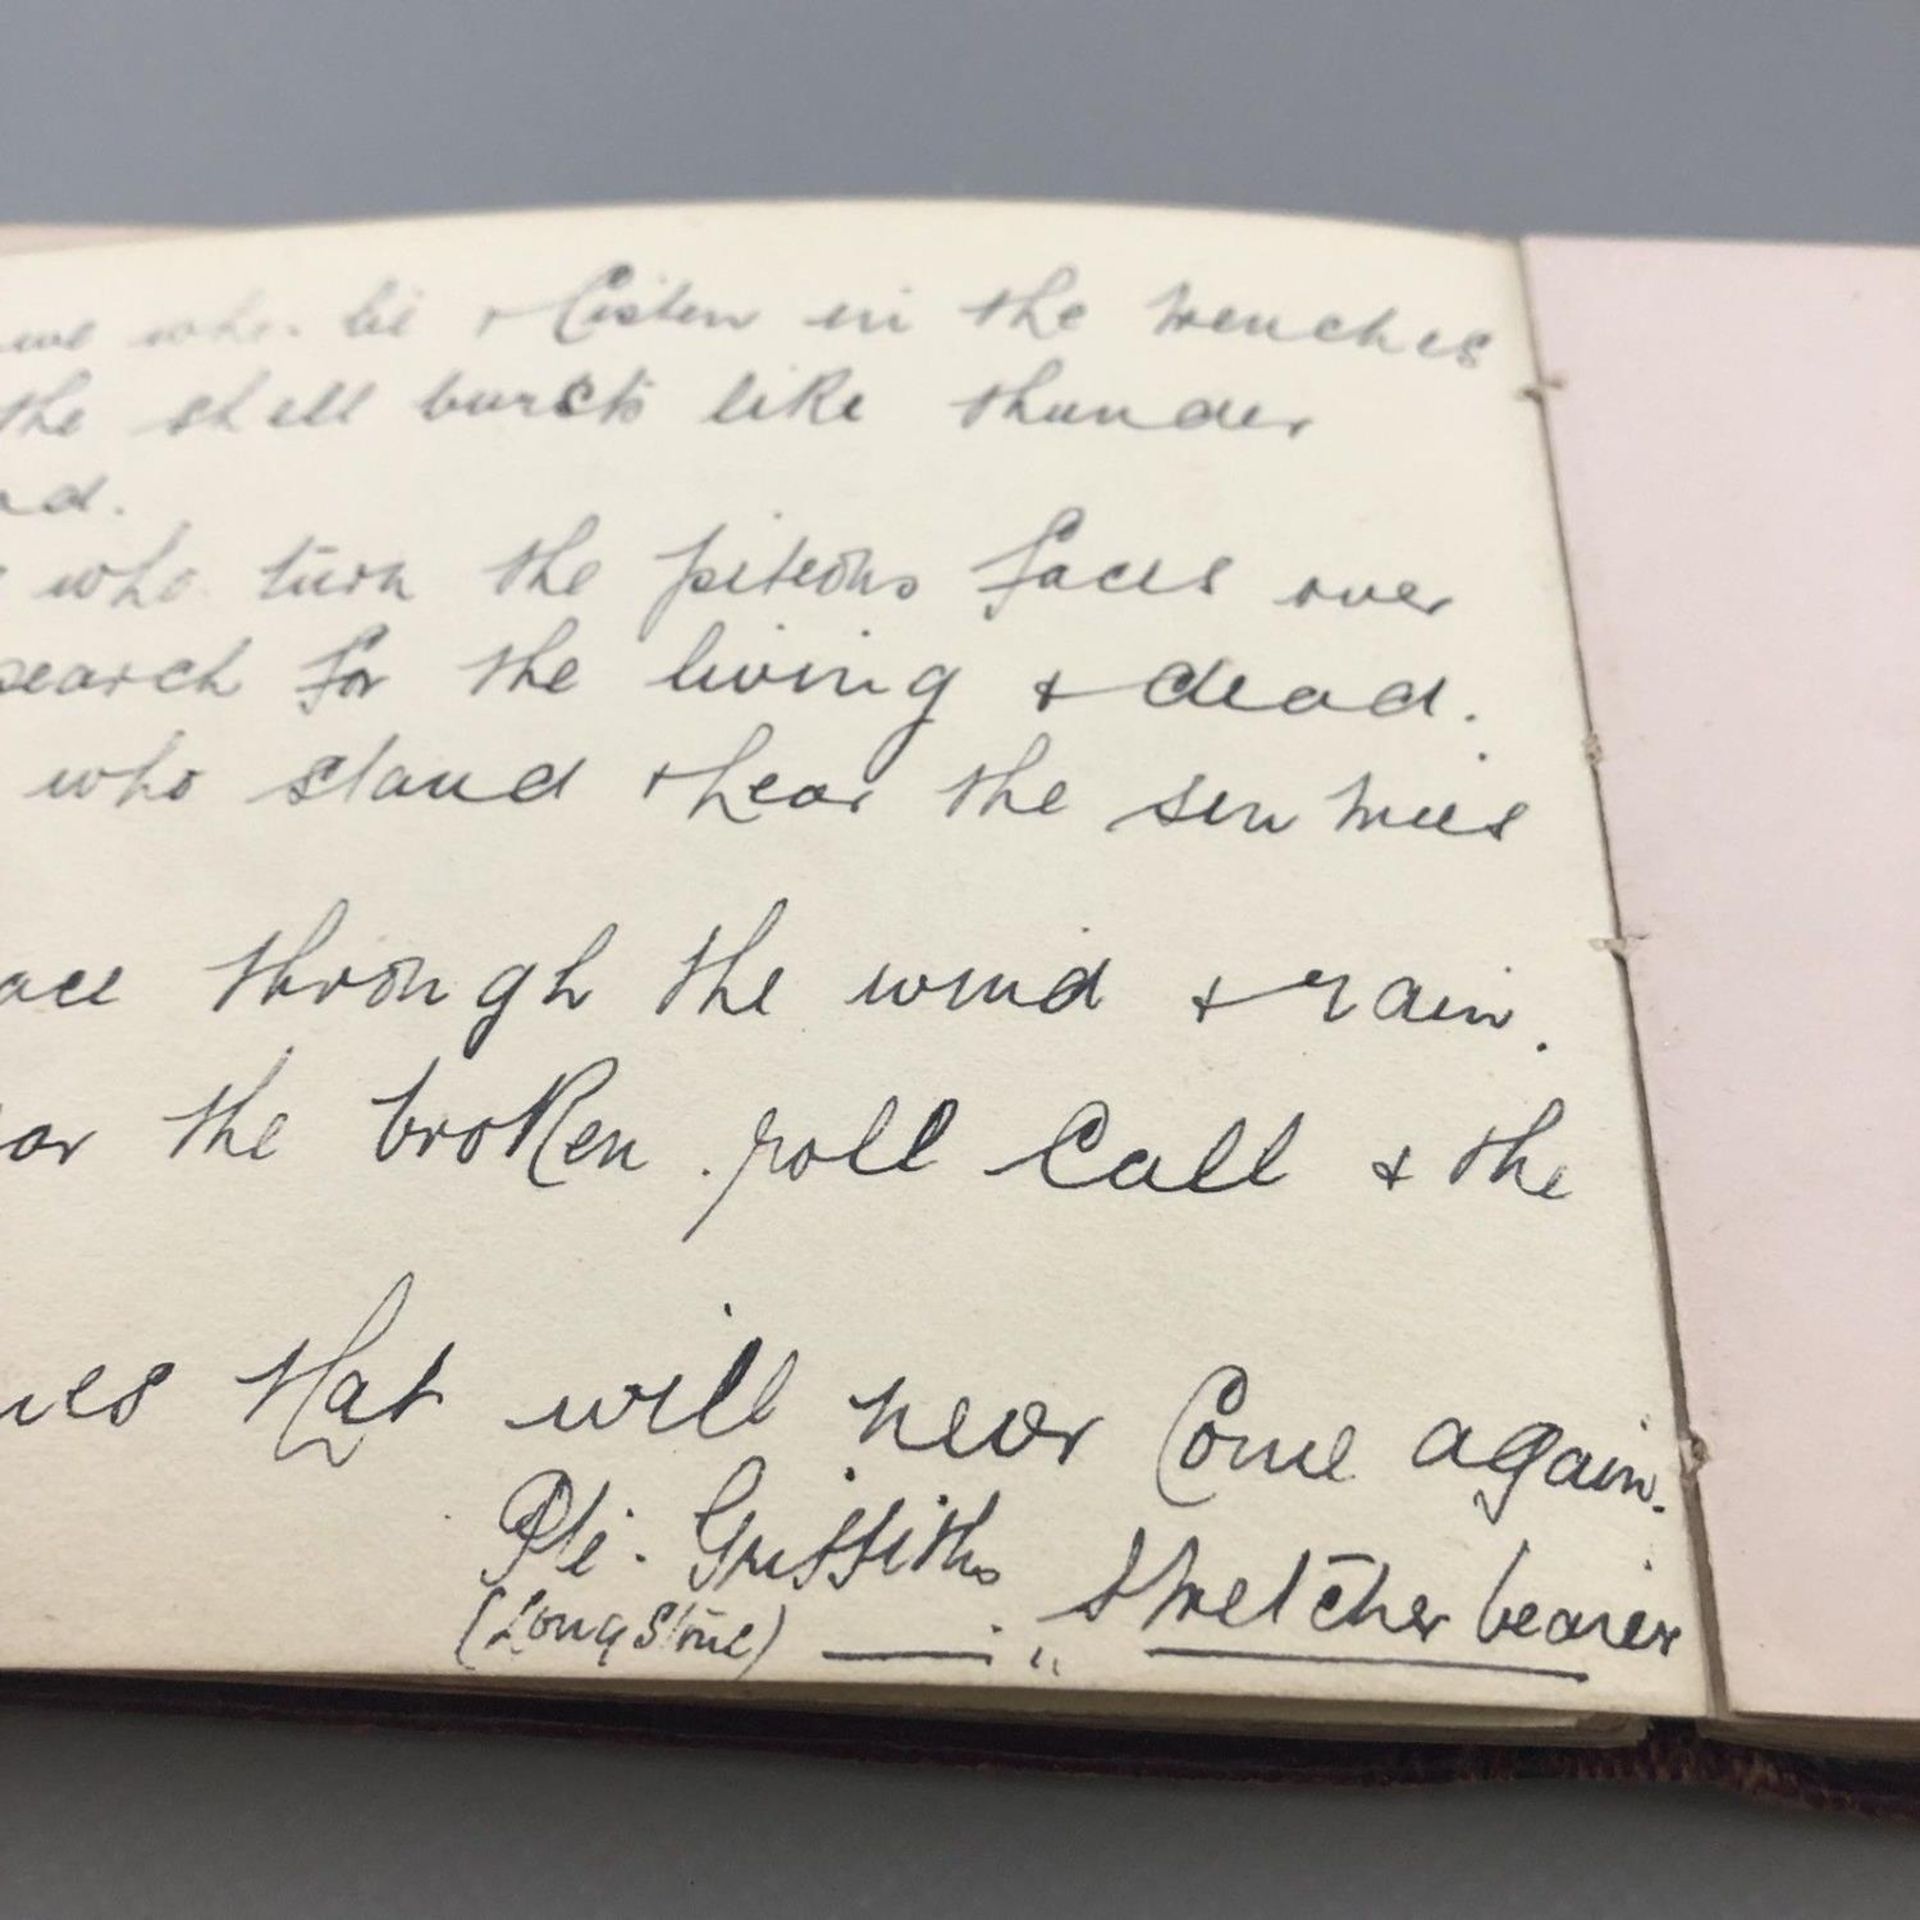 who lie & listen in the trenches
the shell bursts like thunder
who turn the piteous faces over
search for the living & dead.
who stand & hear the sentries
through the wind & rain.
the broken roll call & the
that will never come again.
Pte. Griffiths Stretcher bearer
(Longstone) — "